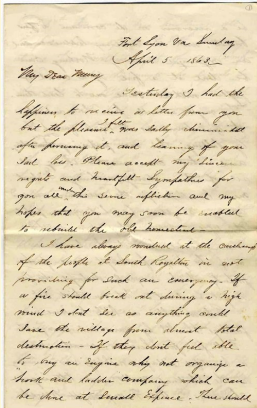 Fort Lyon Va Sunday
April 5 1863
My Dear
Yesterday I had the
happiness to receive a letter from you
but the pleasure I felt was sadly diminished
after perusing it, and learning of your
sad loss. Please accept my
regrets and heartfelt Sympathies for
you all in this severe affliction and my
hopes that you may soon be enabled
to rebuild the old homestead -
I have always wondered at the
of the people at South Royalton in not
providing for such an emergency. If
a fire should break out during a high
wind I dont see as anything could
save the village from almost total
destruction - If they dont feel able
to buy an Engine why not organize a
"hook and ladder company which can
be done at small Expense. There should